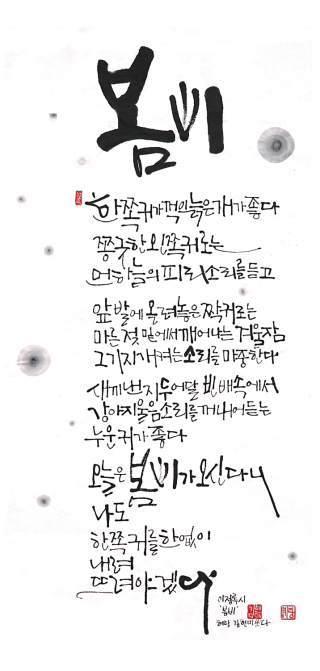 봄비
한쪽 귀가 꺽인 늙은 개가 좋다
쫑긋한 왼쪽 귀로는
먼 하늘의 피리 소리를 듣고
앞발에 올려놓은 짝귀로는
마른 젖 밑에서 깨어나는 겨울잠
그 기지개 켜는 소리를 마중한다
새끼 낸 지 두어 달 빈 배 속에서
강아지 울음소리를 꺼내어 듣는
누운 귀가 좋다
오늘은 봄비가 오신다니
나도
한쪽 귀를 한없이
내려
뜨려야겠다
이정록 시
'봄비'
김현미 쓰다